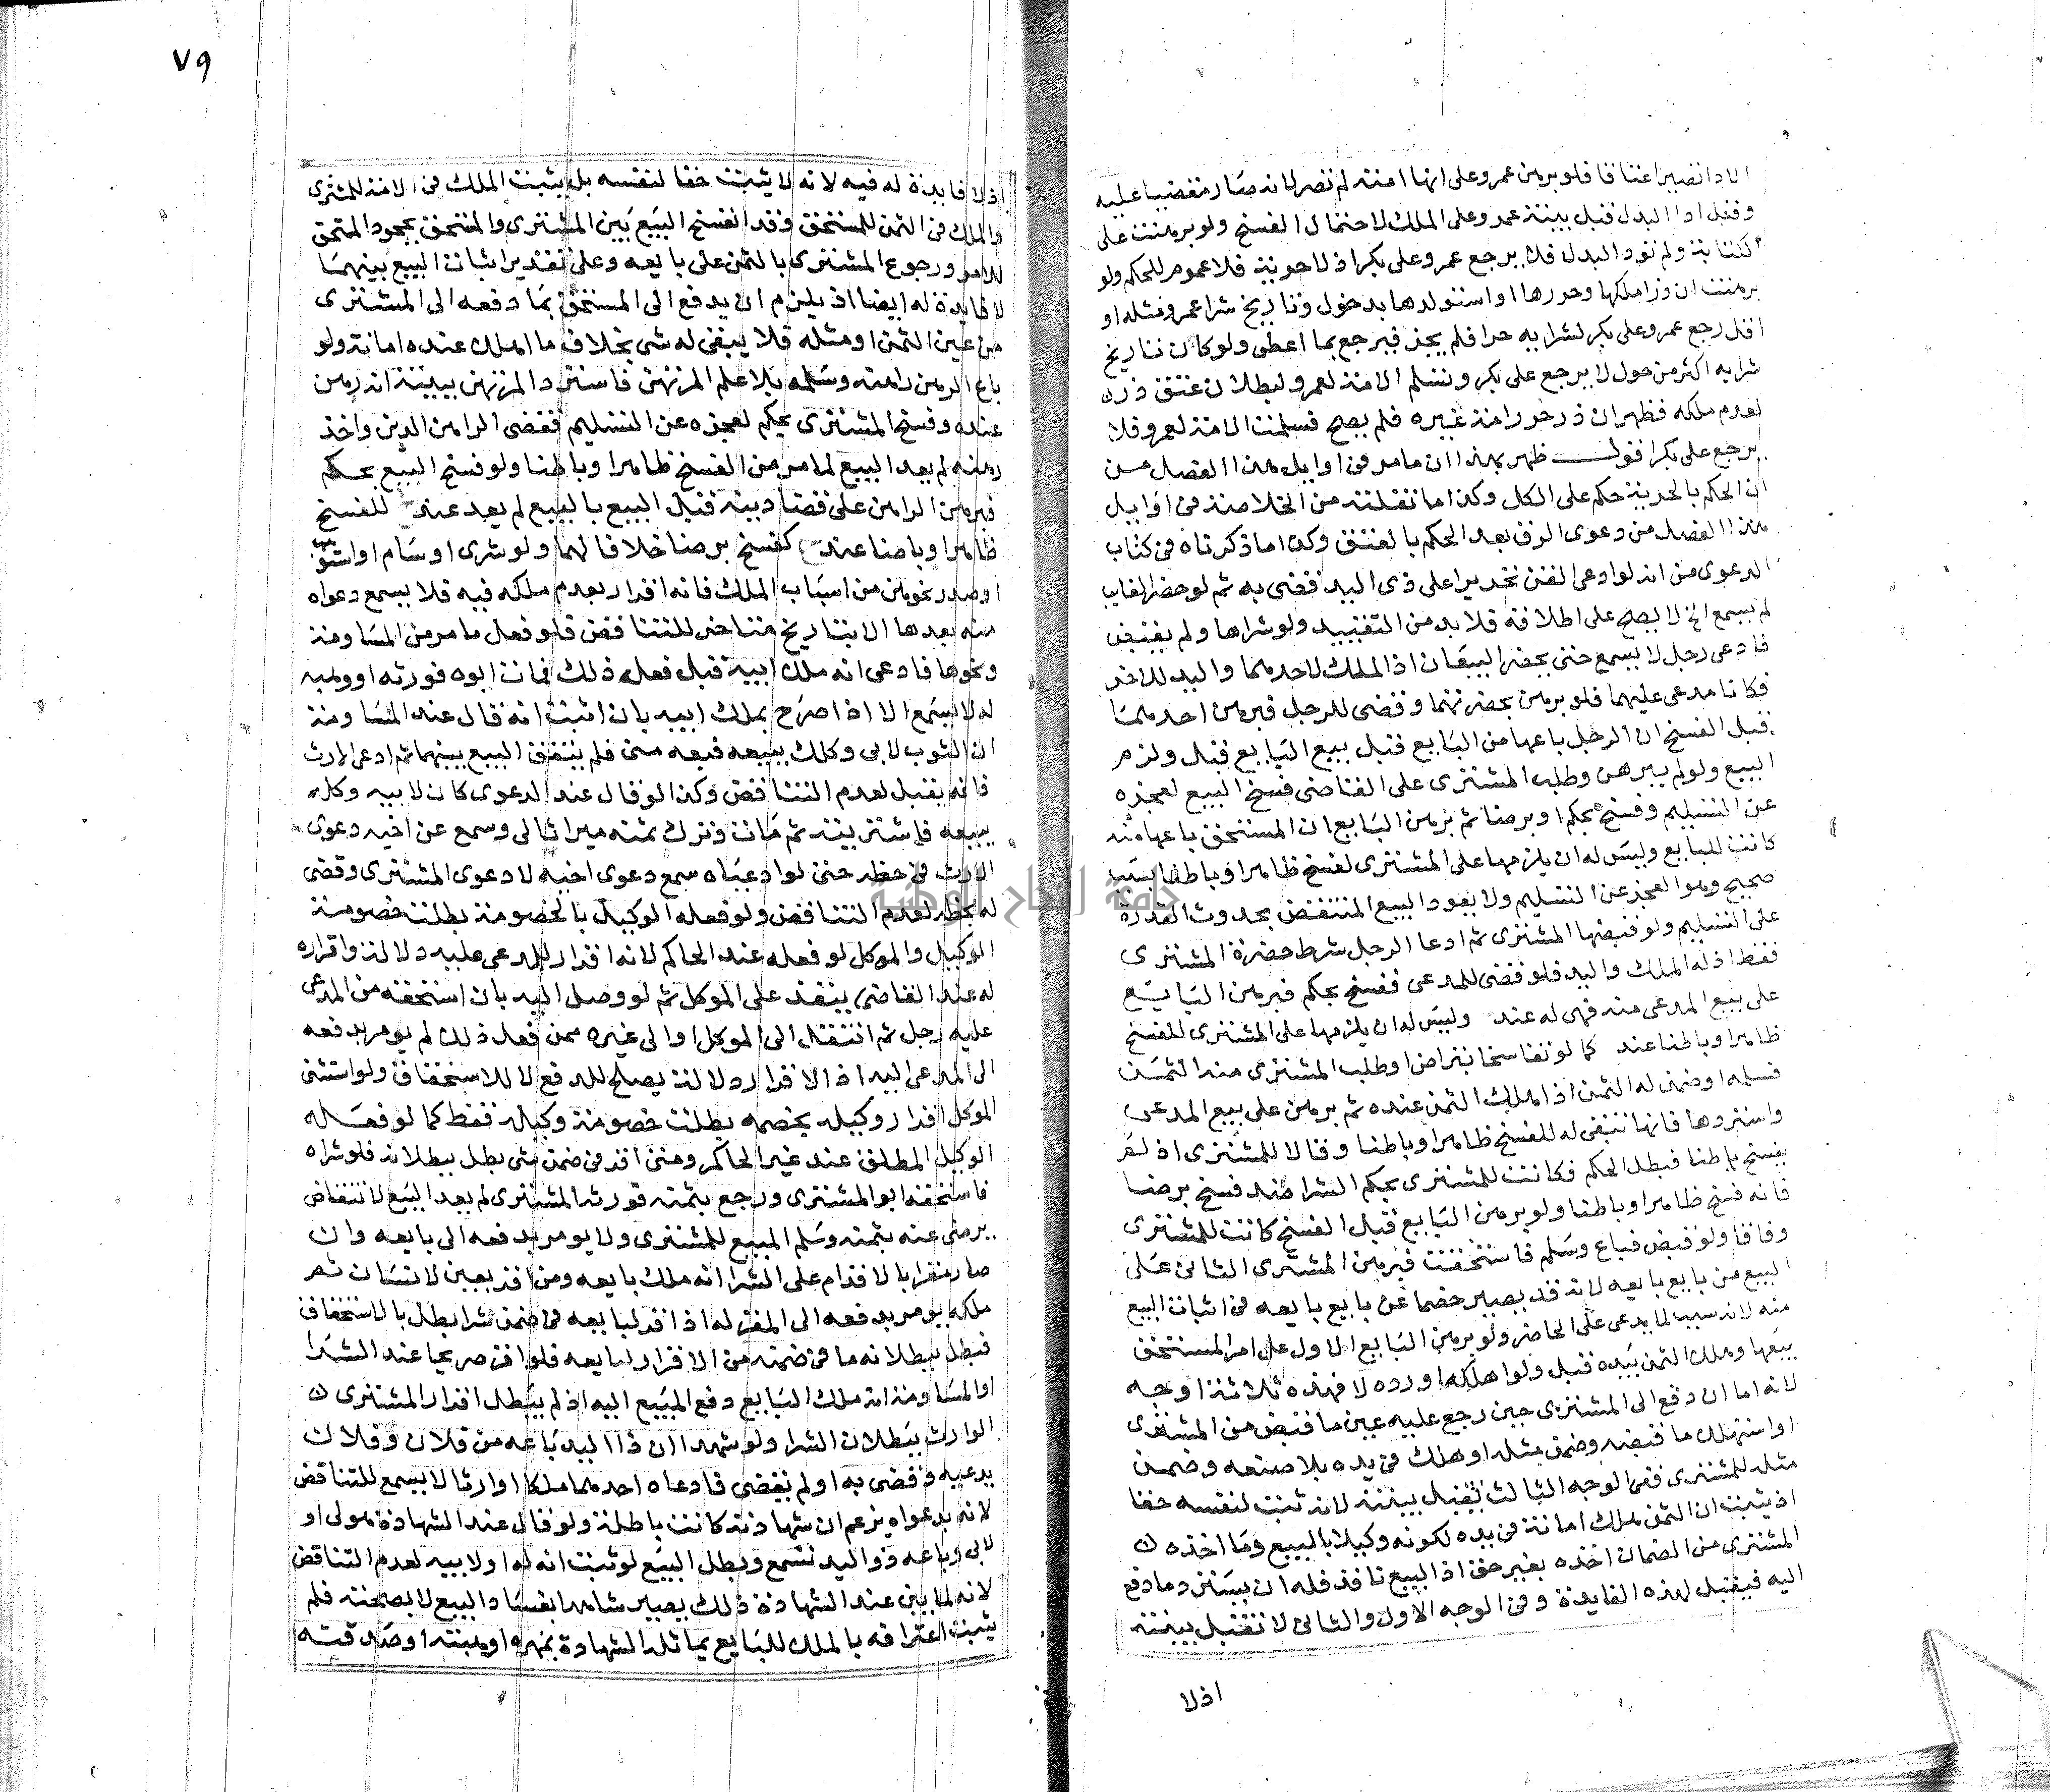 الادا تصير اعتاقا فلو برهن عمرو على انها امته لم تصر لانه صار مقضيا عليه
وقبل ادا البدل قبل بينة عمرو على الملك لاحتمال الفسخ ولو برهنت على
كتابة ولم تود البدل فلا يرجع عمرو على بكر اذ لا حرية فلا عموم للحكم ولو
برهنت ان ذرا ملكها وحررها او استولدها بدخول وتاريخ شرا عمرو مثله او
اقل رجع عمرو على بكر لشرايه حرا فلم يجز فيرجع بما اعطى ولو كان تاريخ
شرايه اكثر من حول لا يرجع على بكر وتسلم الامة لعمرو لبطلان عتق ذر
لعدم ملكه فظهر ان ذر حرر امة غيره فلم يصح فسلمت الامة لعمرو فلا
يرجع على بكر اقول ظهر بهذا ان ما مر في اوايل هذا الفصل من
ان الحكم بالحرية حكم على الكل وكذا ما نقلته من الخلاصة في اوايل
هذا الفصل من دعوى الرق بعد الحكم بالعتق وكذا ما ذكرناه في كتاب
الدعوى من انه لو ادعى القن تحريرا على ذي اليد فقضى به ثم لو حضر الغايب
لم يسمع الخ لا يصح على اطلاقه فلا بد من التقييد ولو شراها ولم يقبض
فادعى رجل لا يسمع حتى يحضر البيعان اذ الملك لاحدهما واليد للاخر
فكانا مدعى عليهما فلو برهن بحضرتهما وقضى للرجل فبرهن احدهما
قبل الفسخ ان الرجل باعها من البايع قبل بيع البايع قبل ولزم
البيع ولو لم يبرهن وطلب المشتري على القاضي فسخ البيع لعجزه
عن التسليم وفسخ بحكم او برضا ثم برهن البايع ان المستحق باعها منه
كانت للبايع وليس له ان يلزمها على المشتري لفسخ ظاهرا وباطنا بسبب
صحيح وهو العجز عن التسليم ولا يعود البيع المنتقض بحدوث القدرة
على التسليم ولو قبضها المشتري ثم ادعا الرجل شرط حضرة المشتري
فقط اذ له الملك واليد فلو قضى للمدعي ففسخ بحكم فبرهن البايع
على بيع المدعي منه فهى له عند وليس له ان يلزمها على المشتري للفسخ
ظاهرا وباطنا عند كما لو تفاسخا بتراض او طلب المشتري منه الثمن
فسلمه او ضمن له الثمن اذا هلك الثمن عنده ثم برهن على بيع المدعي
واستردها فانها تبقى له للفسخ ظاهرا وباطنا وقالا للمشتري اذ لم
يفسخ باطنا فبطل الحكم فكانت للمشتري بحكم الشرا ضد فسخ برضا
فانه فسخ ظاهرا وباطنا ولو برهن البايع قبل الفسخ كانت للمشتري
وفاقا ولو قبض فباع وسلم فاستحقت فبرهن المشتري الثاني على
البيع من بايع بايعه لانه قد يصير خصما عن بايع بايعه في اثبات البيع
منه لانه سبب لما يدعى على الحاضر ولو برهن البايع الاول على امر المستحق
ببيعها وهلك الثمن بيده قبل ولو اهلكه او رده لا فهذه ثلاثة اوجه
لانه اما ان دفع الى المشتري حين رجع عليه عين ما قبض من المشتري
او استهلك ما قبضه وضمن مثله او هلك في يده بلا صنعه وضمن
مثله للمشتري ففي الوجه الثالث تقبل بينته لانه ثبت لنفسه حقا
اذ يثبت ان الثمن هلك امانة في يده لكونه وكيلا بالبيع وما اخذه
المشتري من الضمان اخذه بغير حق اذ البيع نافذ فله ان يسترد ما دفع
اليه فيقبل لهذه الفايدة وفي الوجه الاول والثاني لا تقبل بينته
اذ لا
٧٩
اذ لا فايدة له فيه لانه لا يثبت حقا لنفسه بل يثبت الملك في الامة للمشتري
والملك في الثمن للمستحق وقد انفسخ البيع بين المشتري والمستحق بجحود المستحق
للامر ورجوع المشتري بالثمن على بايعه وعلى تقدير اثبات البيع بينهما
لا فايدة له ايضا اذ يلزم ان يدفع الى المستحق بما دفعه الى المشتري
من عين الثمن او مثله فلا يبقى له شي بخلاف ما اهلك عنده امانة ولو
باع الرهن راهنه وسلمه بلا علم المرتهن فاسترد المرتهن ببينة انه رهن
عنده وفسخ المشتري بحكم لعجزه عن التسليم فقضى الراهن الدين واخذ
رهنه لم يعد البيع لما مر من الفسخ ظاهرا وباطنا ولو فسخ البيع بحكم
فبرهن الراهن على قضا دينه قبل البيع بالبيع لم يعد عند للفسخ
ظاهرا وباطنا عند كفسخ برضا خلافا لهما ولو شرى او سام او استوهب
او صدر نحوهن من اسباب الملك فانه اقرار بعدم ملكه فيه فلا يسمع دعواه
منه بعدها الا بتاريخ متاخر للتناقض فلو فعل ما مر من المساومة
ونحوها فادعى انه ملك ابيه قبل فعله ذلك فمات ابوه فورثه او وهبه
له لا يسمع الا اذا صرح بملك ابيه بان اثبت انه قال عند المساومة
ان الثوب لابي وكلك ببيعه فبعه مني فلم يتفق البيع بينهما ثم ادعى الارث
فانه يقبل لعدم التناقض وكذا لو قال عند الدعوى كان لابيه وكله
ببيعه فاشتريته ثم مات وترك ثمنه ميراثا لي وسمع عن اخيه دعوى
الارث في حظه حتى لو ادعياه سمع دعوى اخيه لا دعوى المشتري وقضى
له بحظه لعدم التناقض ولو فعله الوكيل بالخصومة بطلت خصومة
الوكيل والموكل لو فعله عند الحاكم لانه اقرار للمدعى عليه دلالة واقراره
له عند القاضي ينفذ على الموكل ثم لو وصل اليد بان استحقه من المدعى
عليه رجل ثم انتقل الى الموكل او الى غيره ممن فعل ذلك لم يومر بدفعه
الى المدعى اليه اذ الاقرار دلالة يصلح للدفع لا للاستحقاق ولو استثنى
الموكل اقرار وكيله بخصمه بطلت خصومة وكيله فقط كما لو فعله
الوكيل المطلق عند غير الحاكم ومتى اقر في ضمن شي بطل ببطلانه فلو شراه
فاستحقه ابو المشتري ورجع بثمنه فورثه المشتري لم يعد البيع لانتقاض
برضى عنه بثمنه وسلم المبيع للمشتري ولا يومر بدفعه الى بايعه وان
صار مقرا بالاقدام على الشرا انه ملك بايعه ومن اقر بعين لانسان ثم
ملكه يومر بدفعه الى المقر له اذا اقر لبايعه في ضمن شرا بطل بالاستحقاق
فبطل ببطلانه ما في ضمنه من الاقرار لبايعه فلو اقر صريحا عند الشرا
او المساومة انه ملك البايع دفع المبيع اليه اذ لم يبطل اقرار المشتري
الوارث ببطلان الشرا ولو شهدا ان ذا اليد باعه من فلان وفلان
يدعيه وقضى به او لم يقضى فادعاه احدهما ملكا او ارثا لا يسمع للتناقض
لانه بدعواه يزعم ان شهادته كانت باطلة ولو قال عند الشهادة هو لي او
لابي وباعه ذو اليد تسمع وبطل البيع لو ثبت انه له او لابيه لعدم التناقض
لانه لما بين عند الشهادة ذلك يصير شاهدا بفساد البيع لا بصحته فلم
يثبت اعترافه بالملك للبايع بما تلد الشهادة